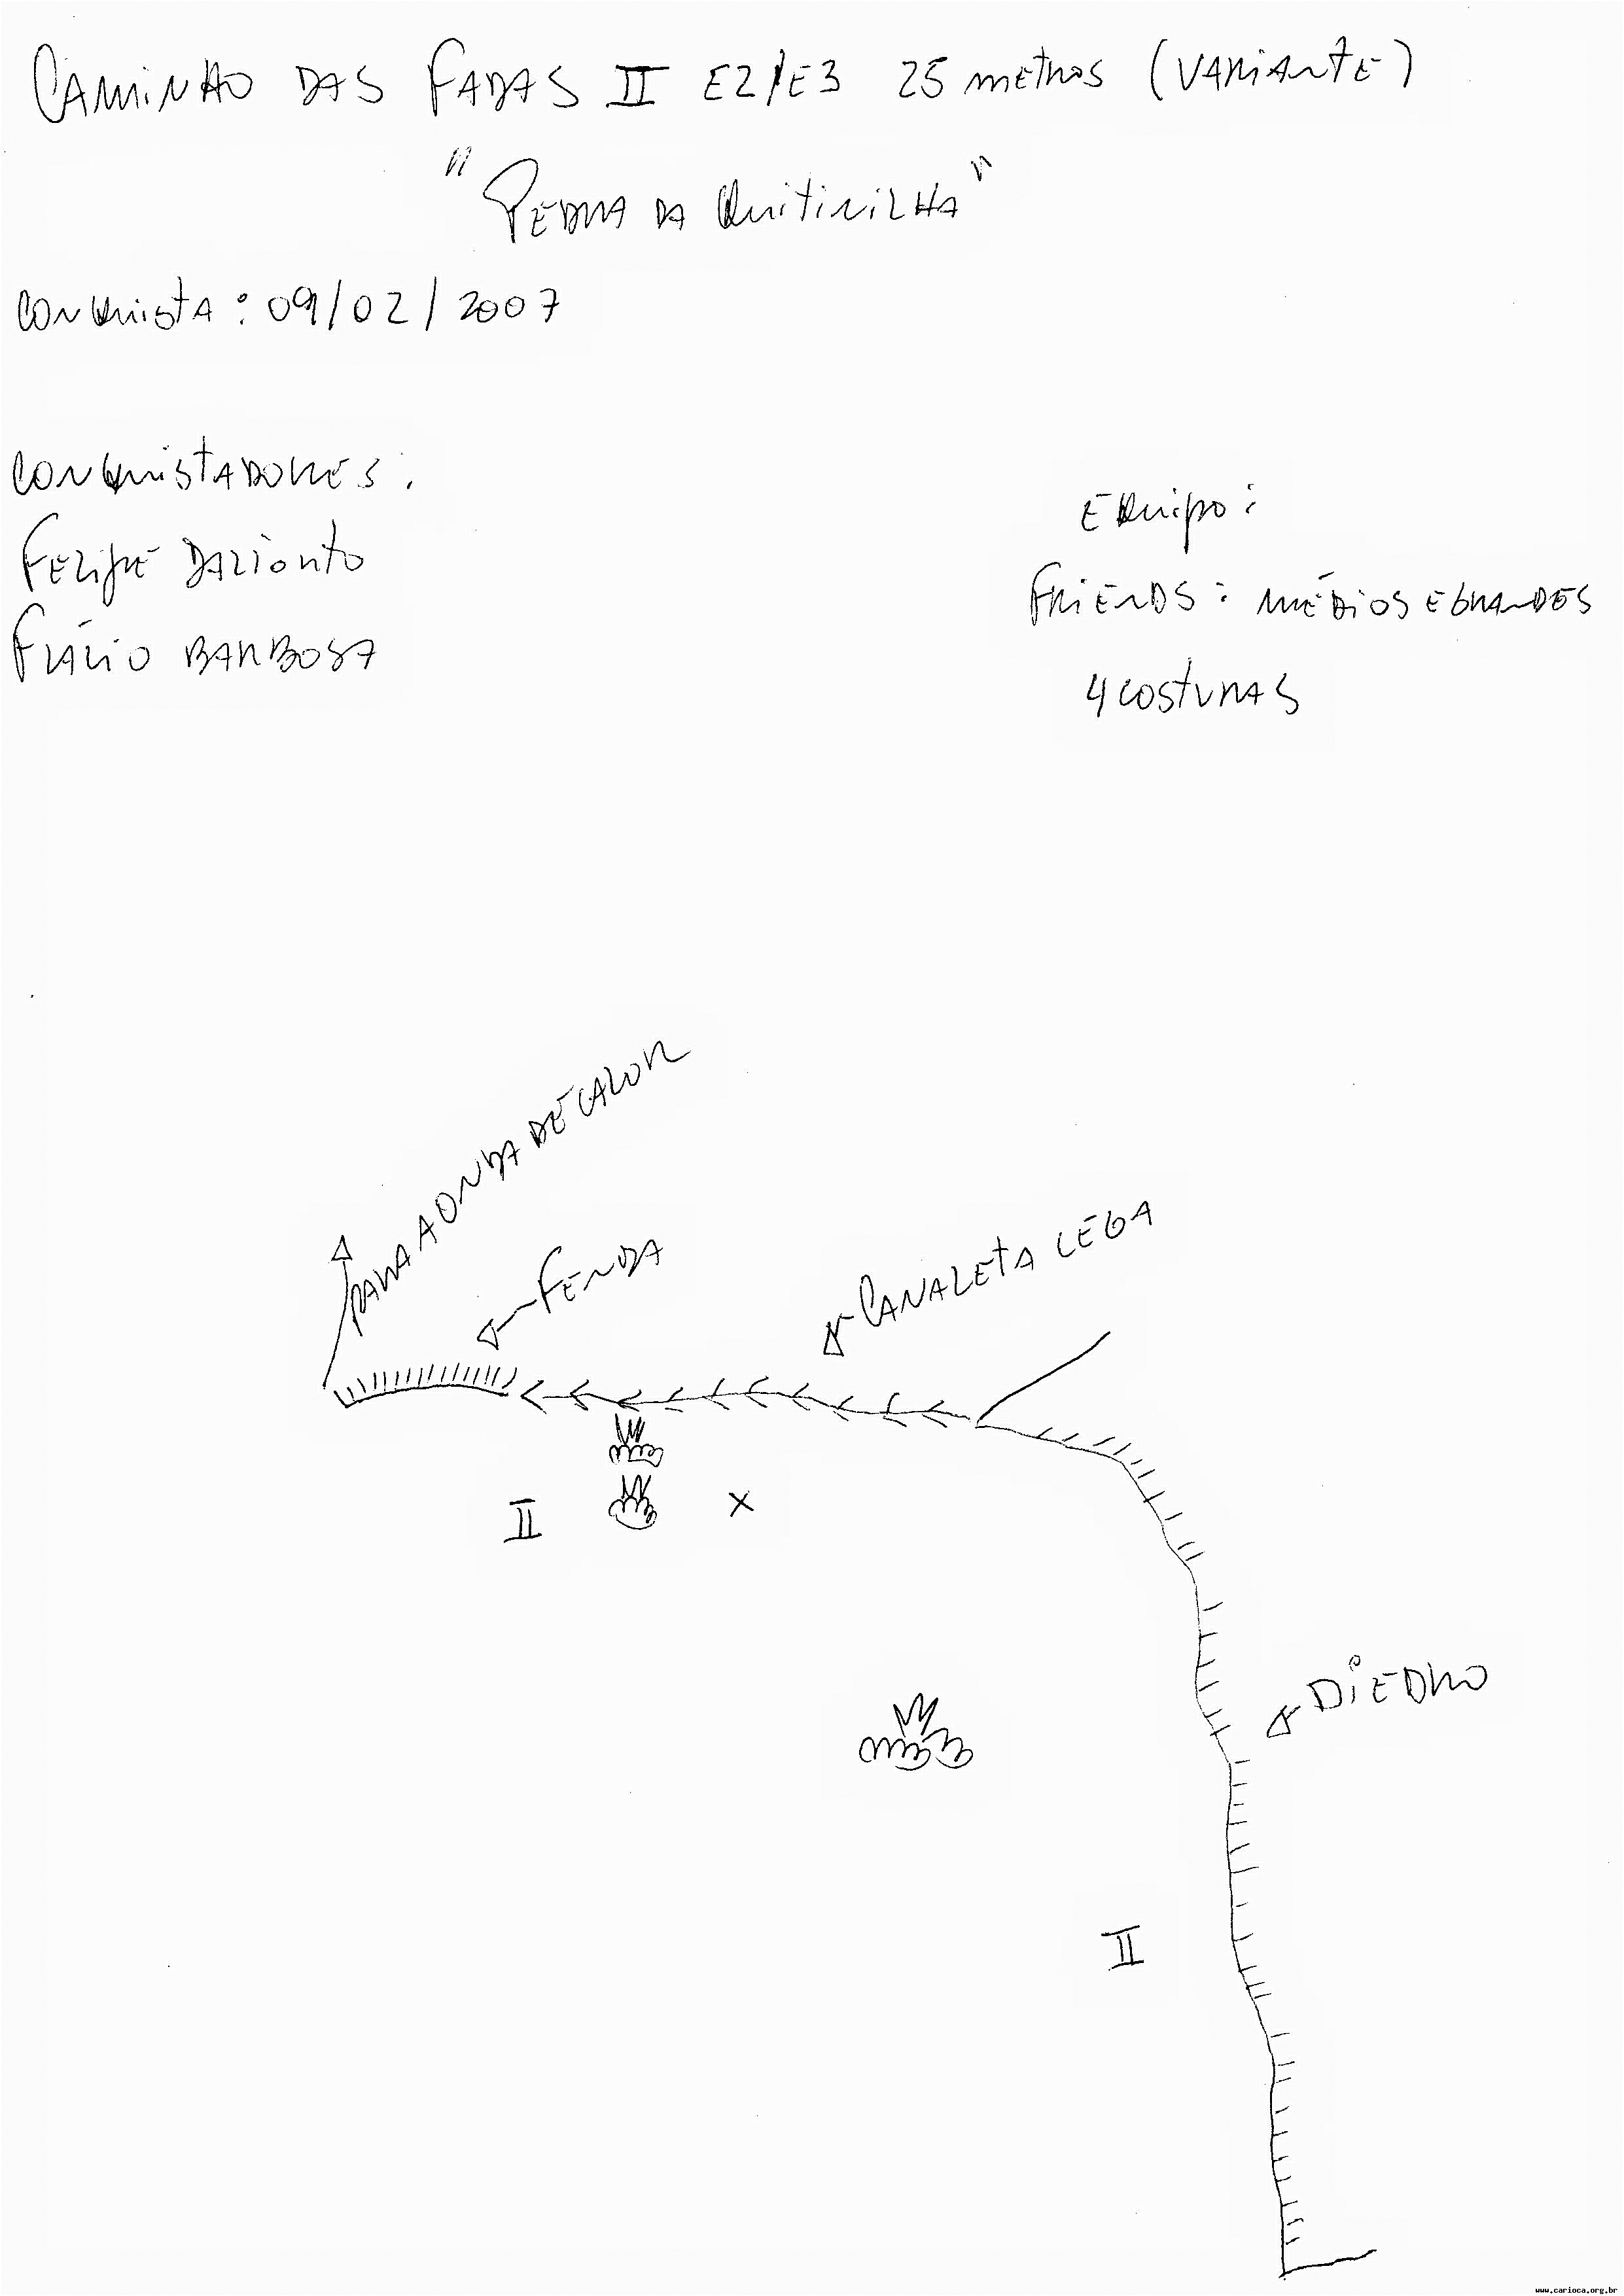 CAMINHO DAS FADAS II E2/E3 25 metros (VARIANTE)
"PEDRA DA QUITIRILHA"
CONQUISTA: 09/02/2007
CONQUISTADORES:
FELIPE DALLORTO
FLÁVIO BARBOSA
EQUIPO:
FRIENDS: MÉDIOS E GRANDES
4 COSTURAS
PARA A ONDA DE CALOR
FENDA
CANALETA CEGA
II
X
DIEDRO
II
www.carioca.org.br